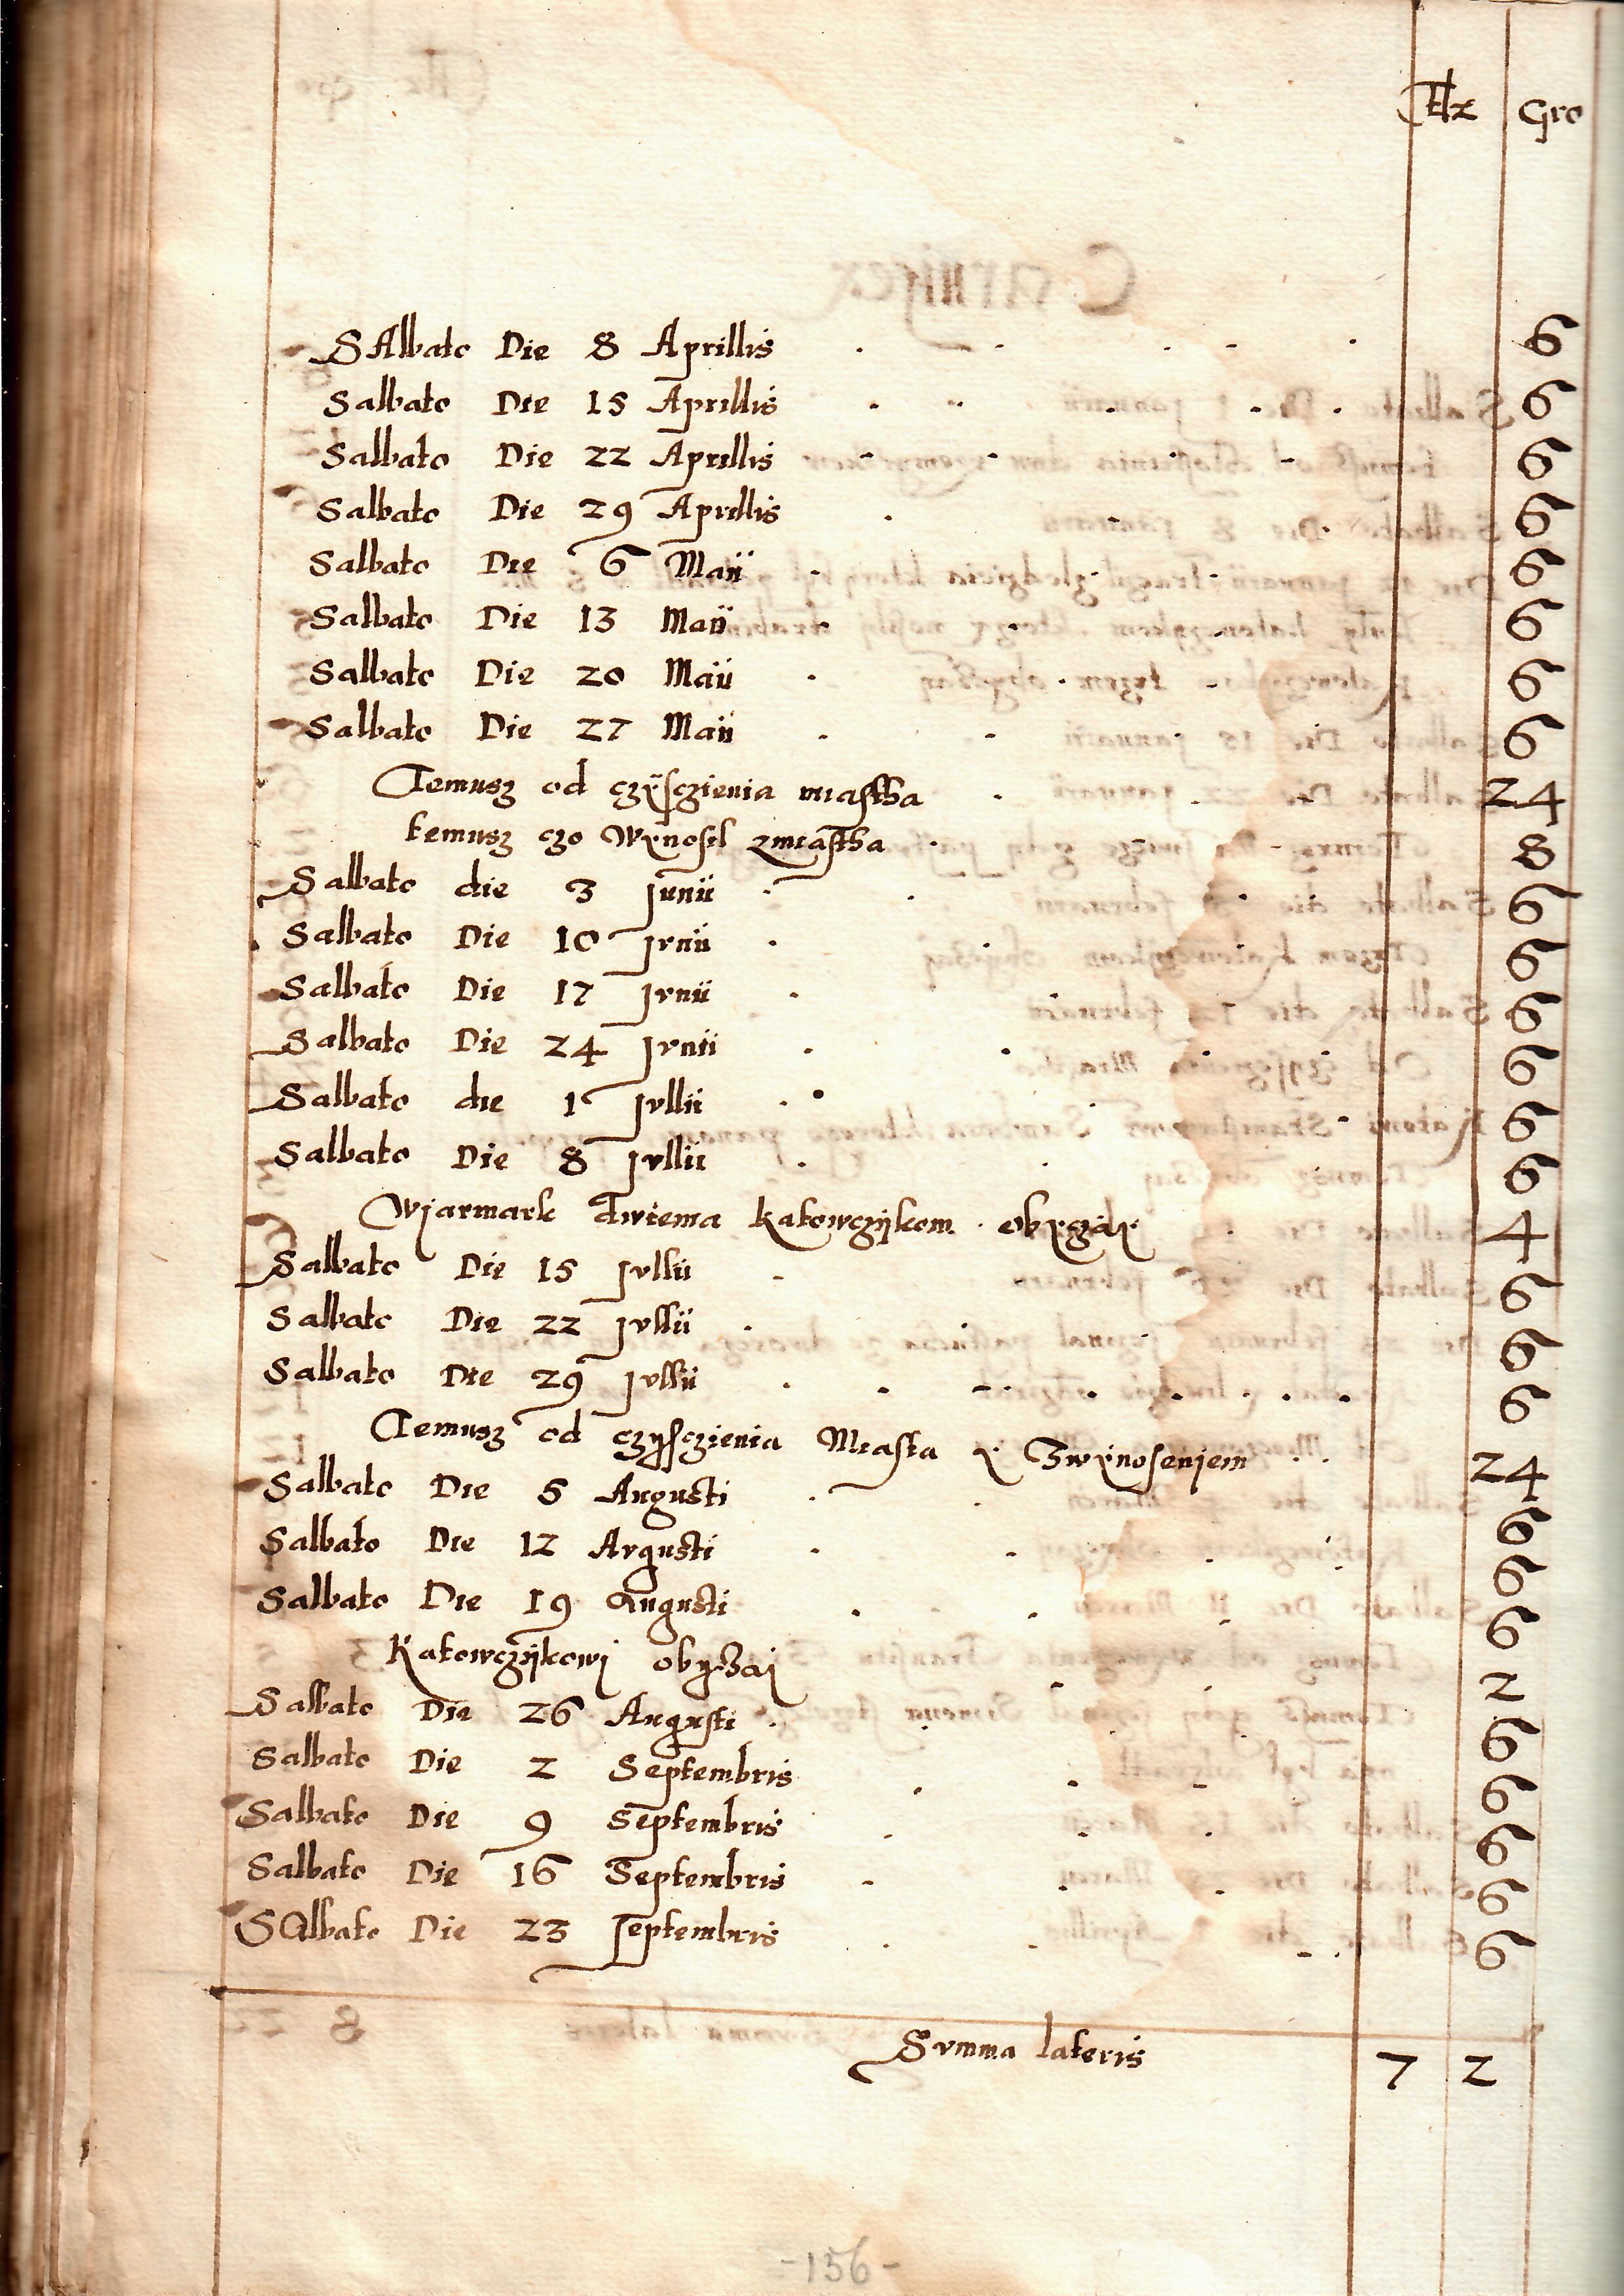 Flz Gro
SAlbato Die 8 Aprillis 6
Salbato Die 15 Aprillis 6
Salbato Die 22 Aprillis 6
Salbato Die 29 Aprillis 6
Salbato Die 6 Maii 6
Salbato Die 13 Maii 6
Salbato Die 20 Maii 6
Salbato Die 27 Maii 6
Temusz od czÿsczienia miastha 24
temusz czo Wynosil zmiastha 8
Salbato die 3 junii 6
Salbato Die 10 jvnii 6
Salbato Die 17 jvnii 6
Salbato Die 24 jvnii 6
Salbato die 1 jvllii 6
Salbato Die 8 jvllii 6
Wjarmark dwiema katowczykom obyczaj 4
Salbato Die 15 jvllii 6
Salbato Die 22 jvllii 6
Salbato Die 29 jvllii 6
Temusz od czysczienia Miasta y Zwynosenjem 24
Salbato Die 5 Augusti 6
Salbato Die 12 Avgusti 6
Salbato Die 19 Augusti 6
Katowczykowj obyczaj 2
Salbato Die 26 Augusti 6
Salbato Die 2 Septembris 6
Salbato Die 9 Septembris 6
Salbato Die 16 Septembris 6
SAlbato Die 23 septembris 6
Svmma lateris 7 2
-156-